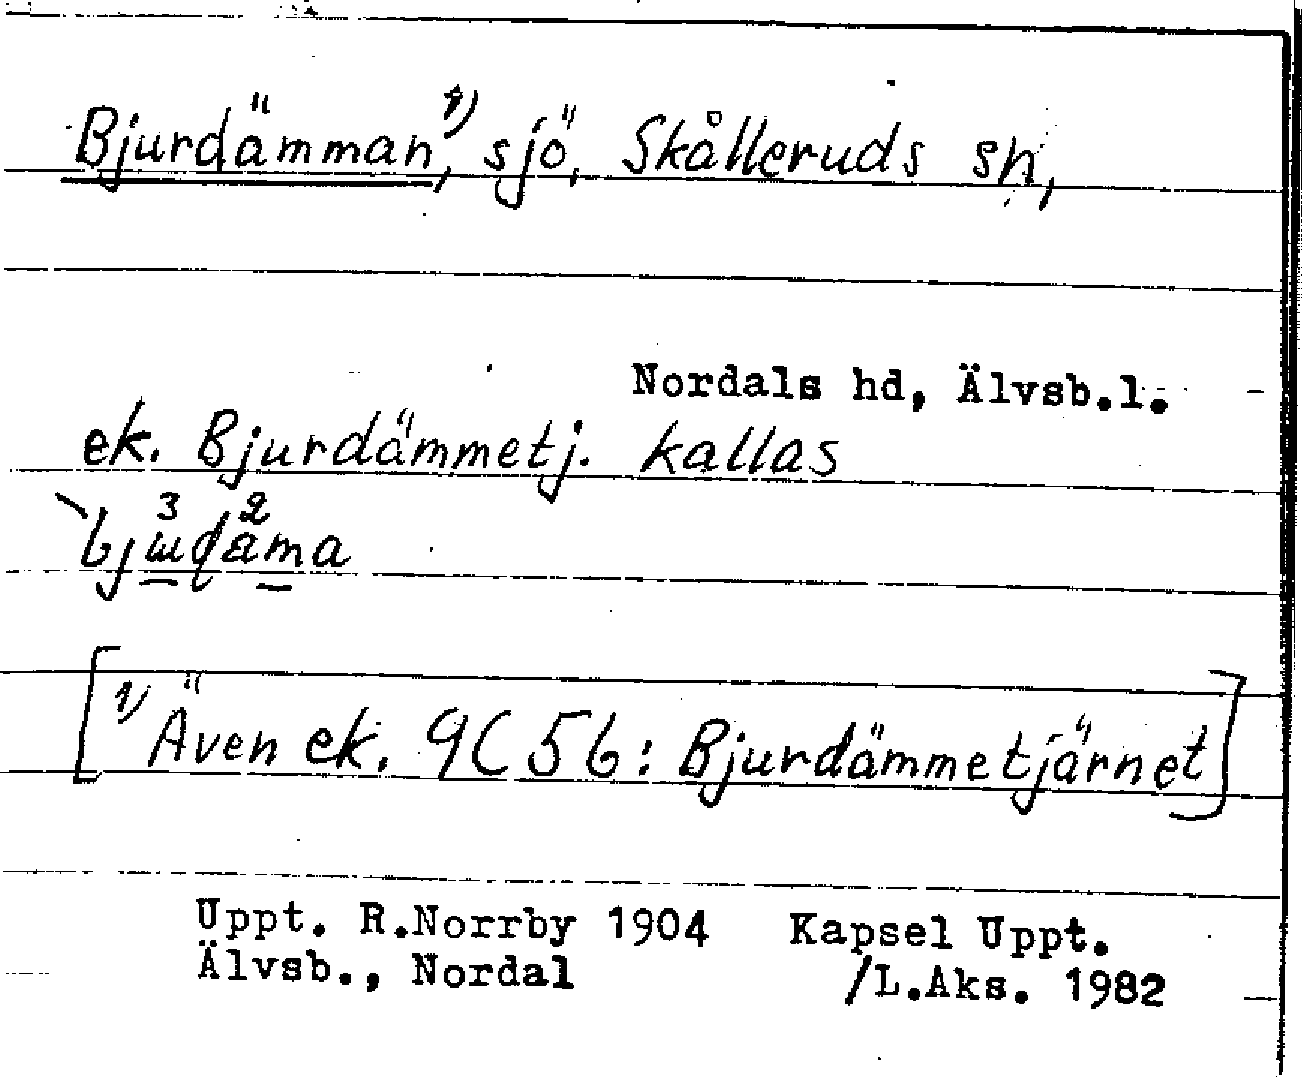 Bjurdämman,¹⁾ sjö, Skålleruds sn,
Nordals hd, Älvsb.l.
ek. Bjurdämmetj. kallas
[¹⁾ Även ek. 9C 5b: Bjurdämmetjärnet]
Uppt. R.Norrby 1904 Kapsel Uppt.
Älvsb., Nordal /L.Aks. 1982